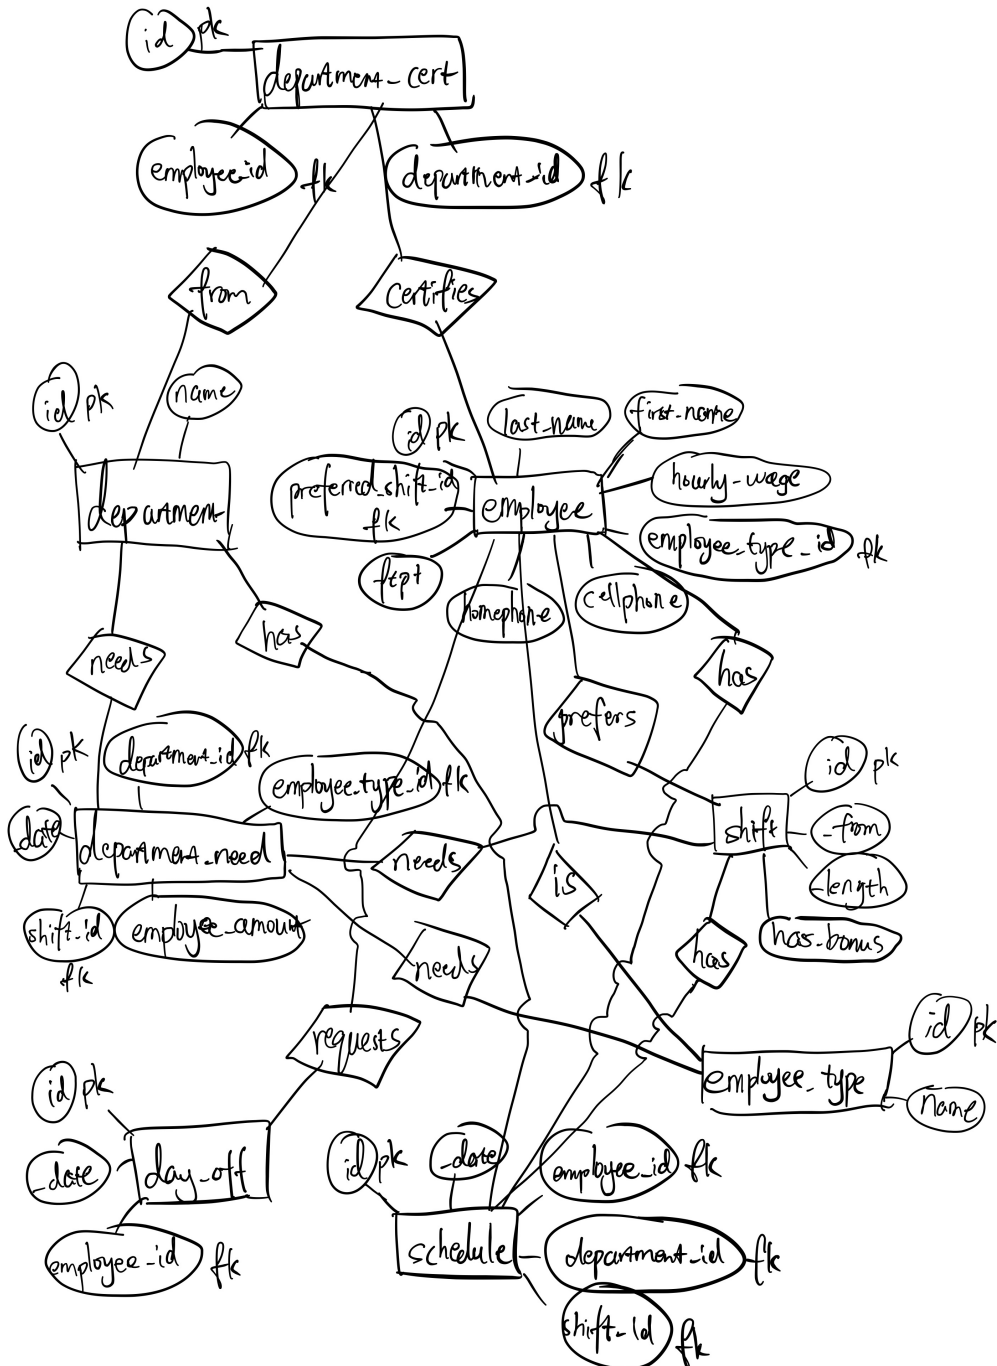 id pk
department_cert
employee_id fk
department_id fk
from
certifies
id pk
name
department
id pk
last_name
first_name
preferred_shift_id
fk
employee
hourly-wage
employee_type_id fk
ftpt
homephone
cellphone
needs
has
has
prefers
id pk
department_id fk
employee_type_id fk
_date
department_need
needs
shift_id
fk
employee_amount
needs
is
id pk
shift
_from
_length
has_bonus
has
requests
id pk
employee_type
name
id pk
_date
day_off
employee_id fk
id pk
_date
employee_id fk
schedule
department_id fk
shift_id fk